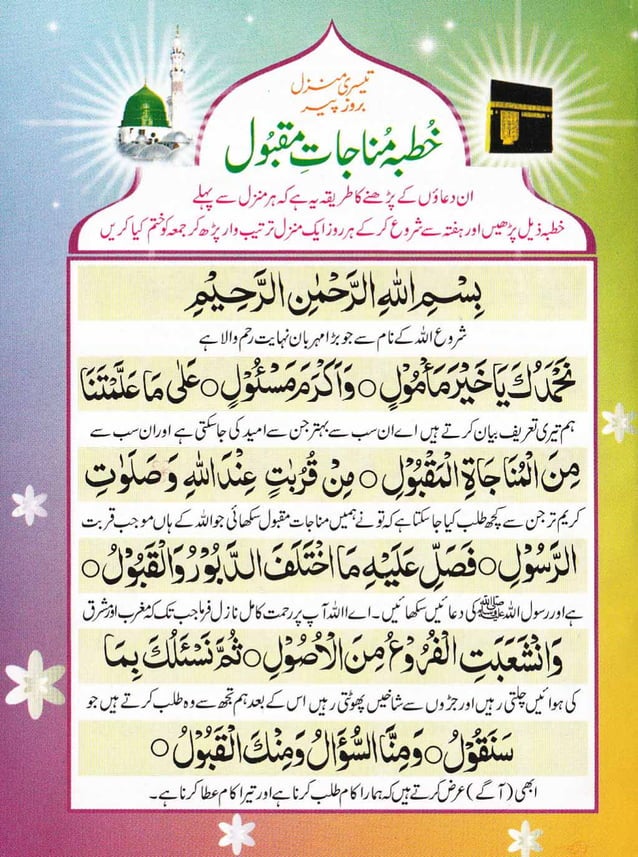 تیسری منزل
بروز پیر
خُطبہ مُناجاتِ مقبُول
ان دعاؤں کے پڑھنے کا طریقہ یہ ہے کہ ہر منزل سے پہلے
خطبہ ذیل پڑھیں اور ہفتہ سے شروع کر کے ہر روز ایک منزل ترتیب وار پڑھ کر جمعہ کو ختم کیا کریں
بِسْمِ اللهِ الرَّحْمٰنِ الرَّحِيْمِ
شروع اللہ کے نام سے جو بڑا مہربان نہایت رحم والا ہے
نَحْمَدُكَ يَا خَيْرَ مَأْمُوْلٍ ○ وَاَكْرَمَ مَسْئُوْلٍ ○ عَلٰى مَا عَلَّمْتَنَا
ہم تیری تعریف بیان کرتے ہیں اے ان سب سے بہتر جن سے امید کی جاسکتی ہے اور ان سب سے
مِنَ الْمُنَاجَاةِ الْمَقْبُوْلِ ○ مِنْ قُرُبٰتٍ عِنْدَ اللهِ وَصَلَوٰتِ
کریم تر جن سے کچھ طلب کیا جا سکتا ہے کہ تو نے ہمیں مناجات مقبول سکھائی جو اللہ کے ہاں موجب قربت
الرَّسُوْلِ ○ فَصَلِّ عَلَيْهِ مَا اخْتَلَفَ الدَّبُوْرُ وَالْقَبُوْلُ ○
ہے اور رسول اللہ ﷺ کی دعائیں سکھائیں۔ اے اللہ آپ پر رحمت کامل نازل فرما جب تک کہ مغرب اور مشرق
وَانْشَعَبَتِ الْفُرُوْعُ مِنَ الْاُصُوْلِ ○ ثُمَّ نَسْئَلُكَ بِمَا
کی ہوائیں چلتی رہیں اور جڑوں سے شاخیں پھوٹتی رہیں اس کے بعد ہم تجھ سے وہ طلب کرتے ہیں جو
سَنَقُوْلُ ○ وَمِنَّا السُّؤَالُ وَمِنْكَ الْقَبُوْلُ ○
ابھی (آگے) عرض کرتے ہیں کہ ہمارا کام طلب کرنا ہے اور تیرا کام عطا کرنا ہے۔